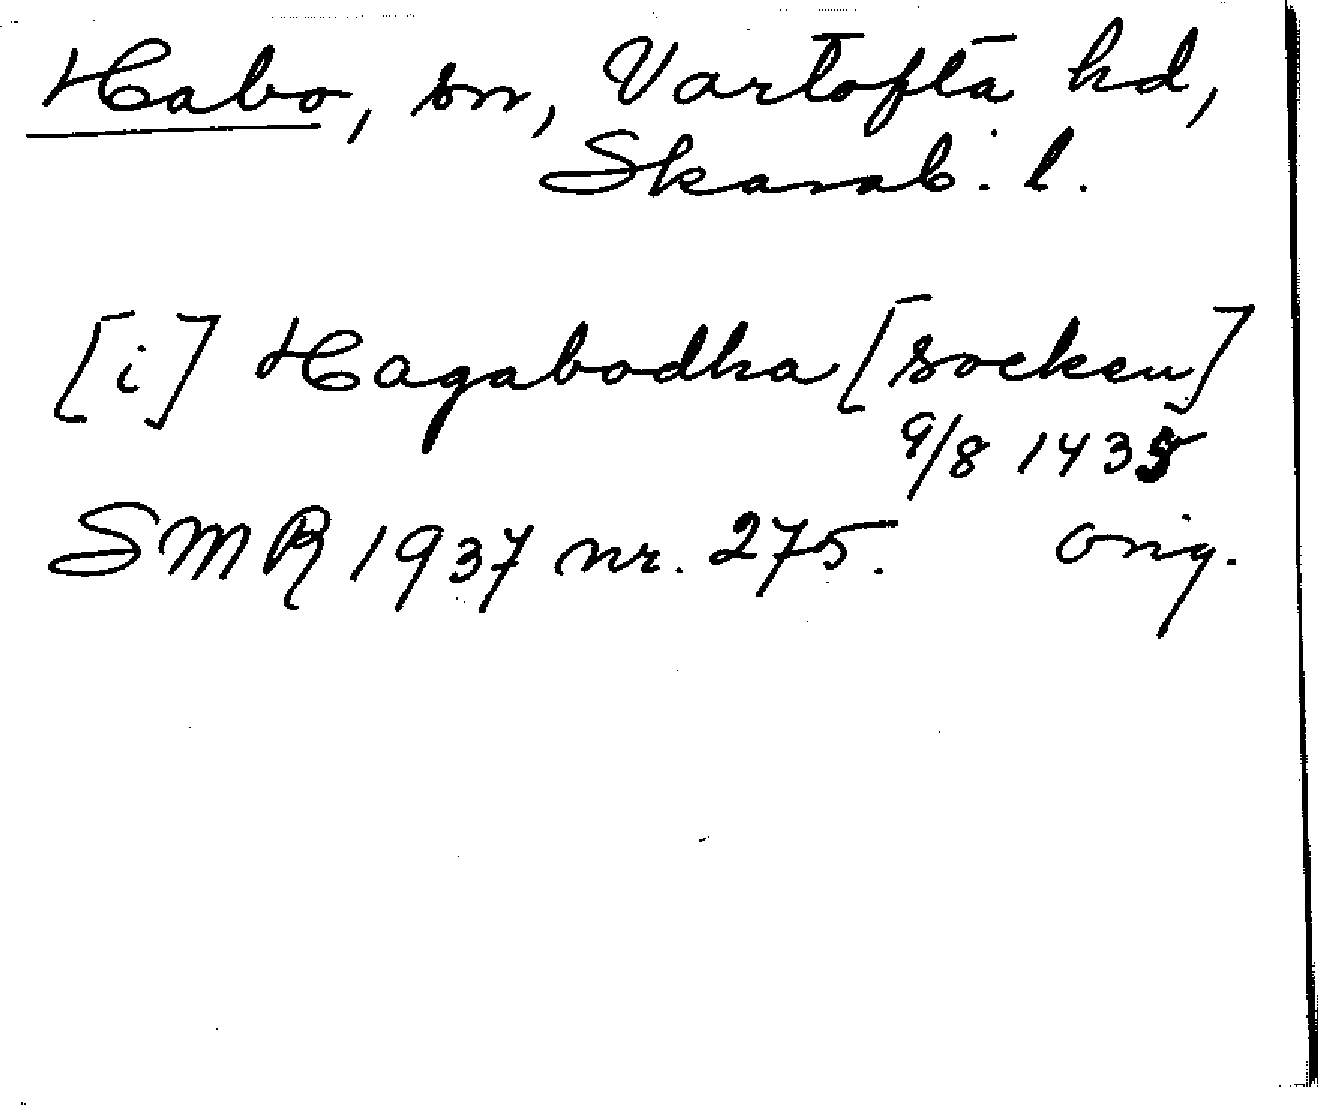 Habo, sn, Vartofta hd,
Skarab. l.
[i] Hagabodha [socken]
9/8 1435
SMR 1937 nr. 275. orig.